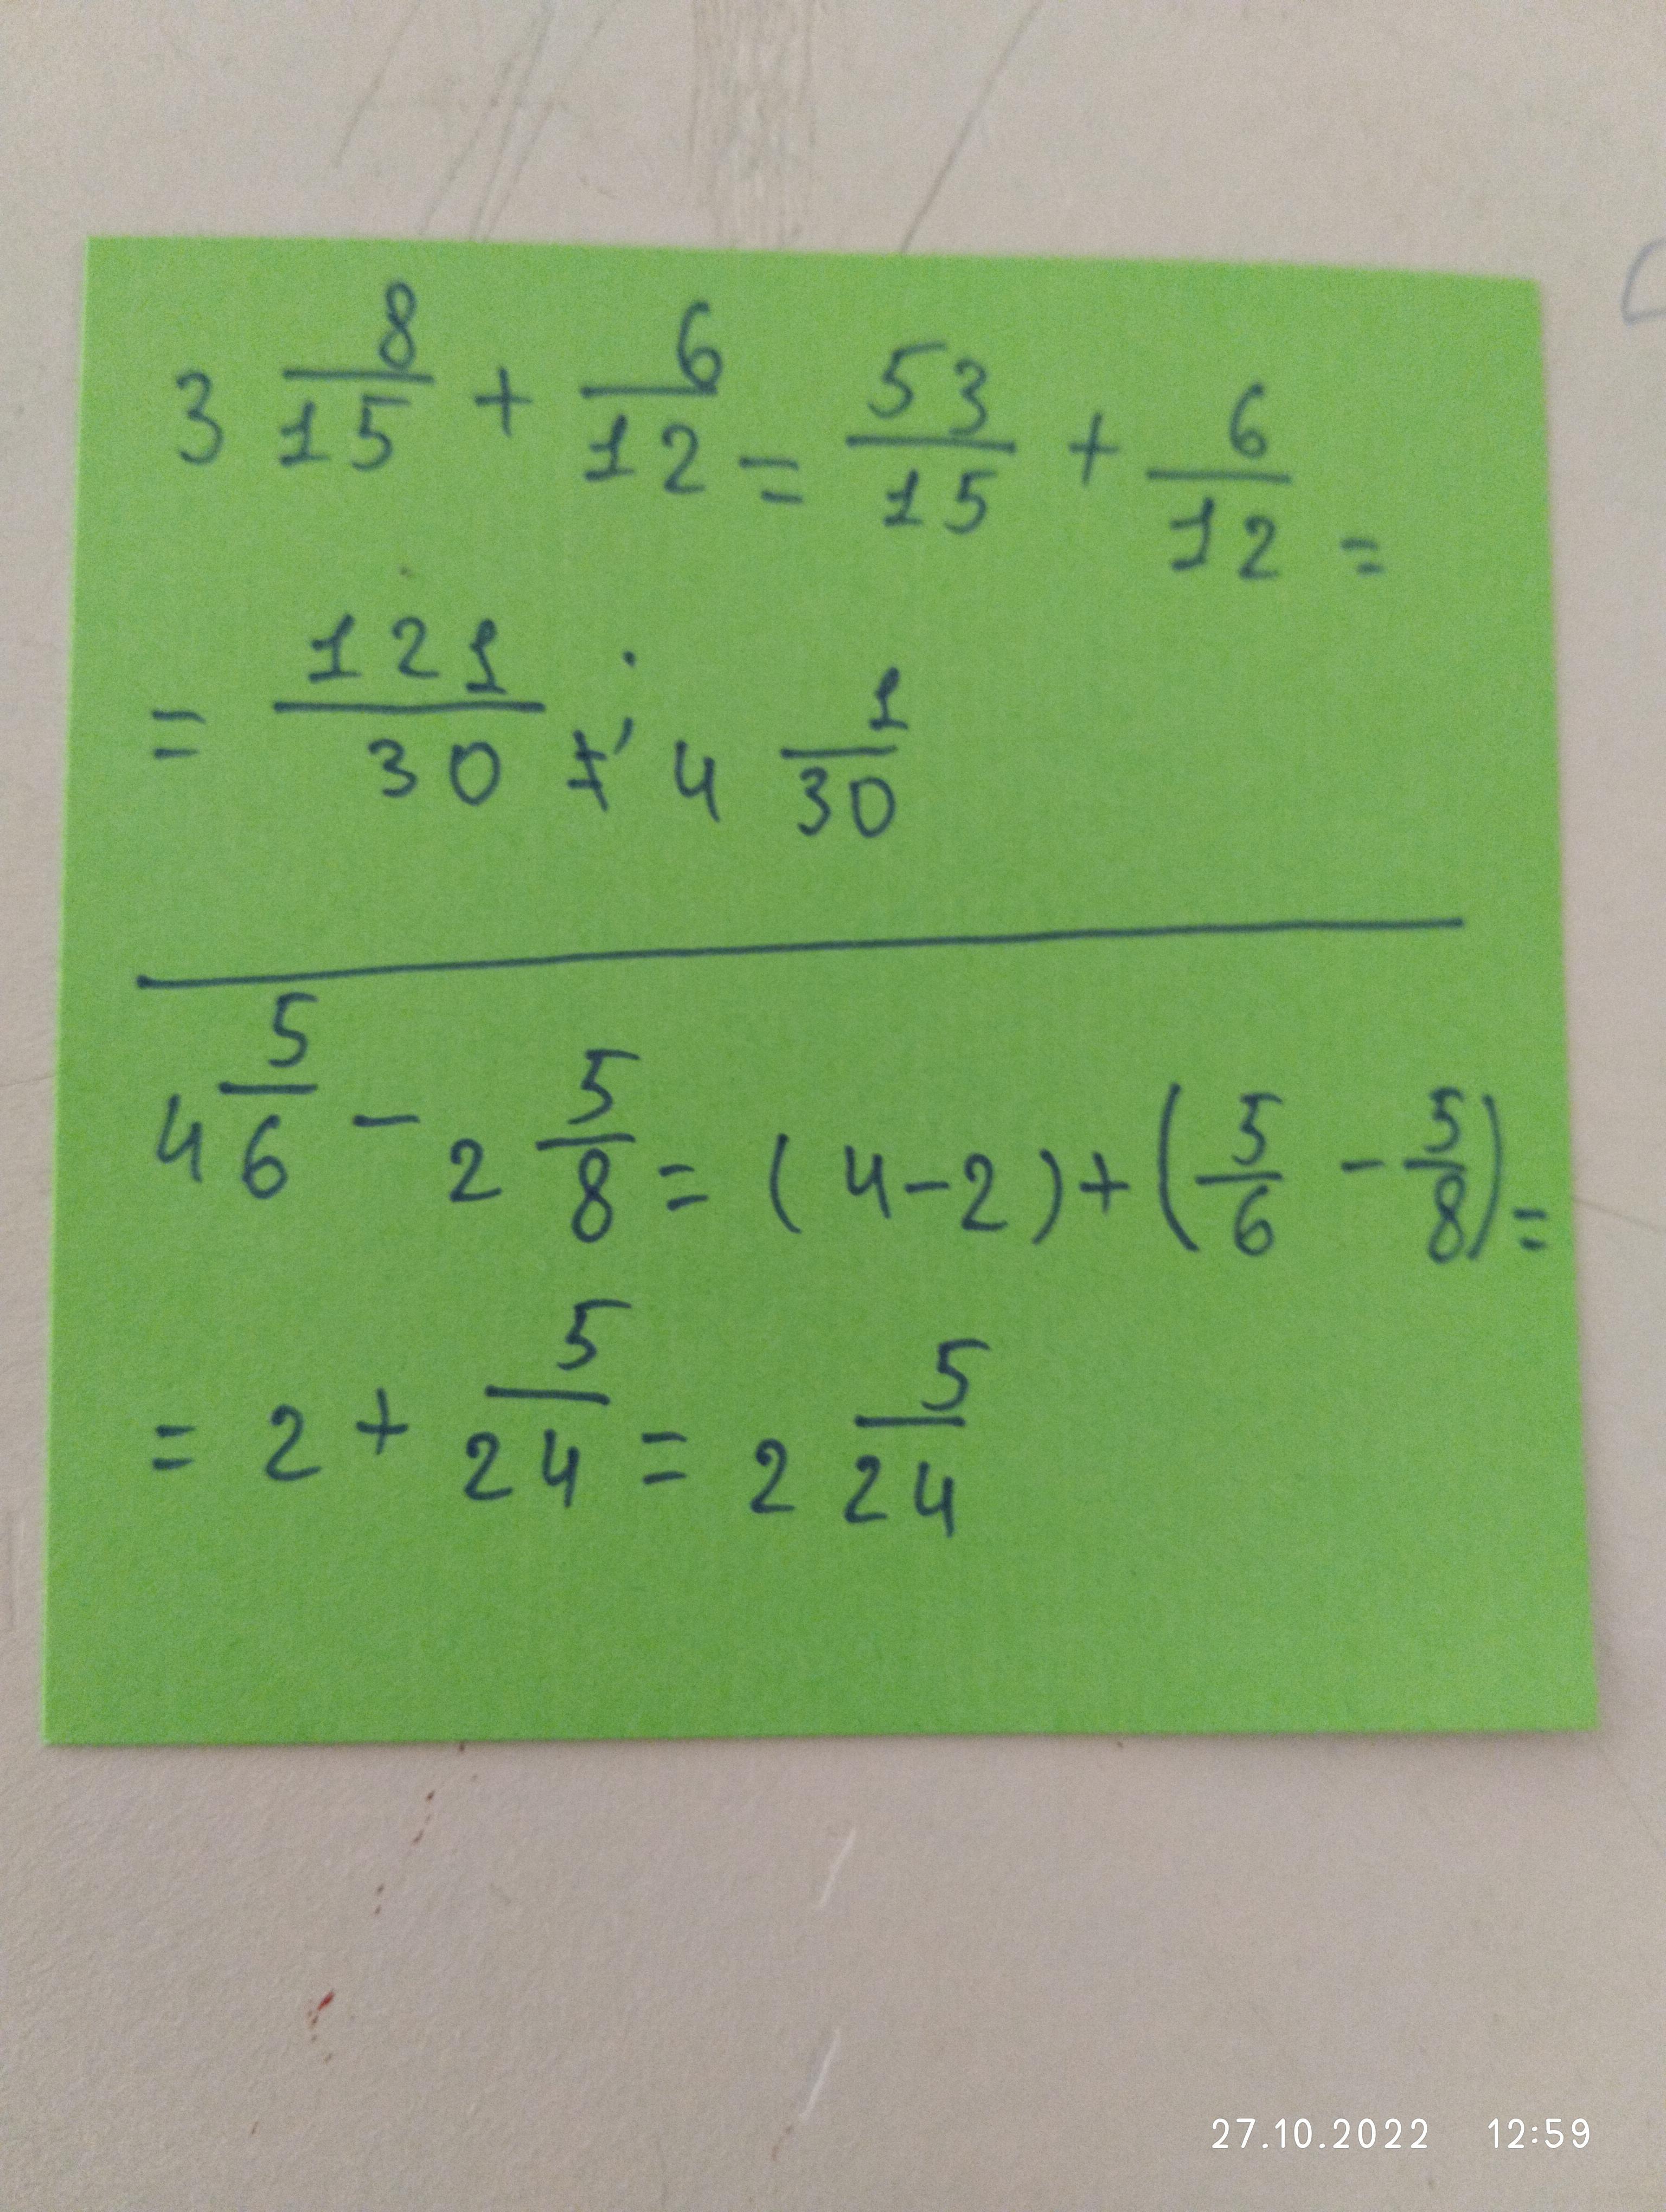 3 8/15 + 6/12 = 53/15 + 6/12 =
= 121/30 ; 4 1/30
4 5/6 - 2 5/8 = (4-2) + (5/6 - 5/8) =
= 2 + 5/24 = 2 5/24
27.10.2022 12:59